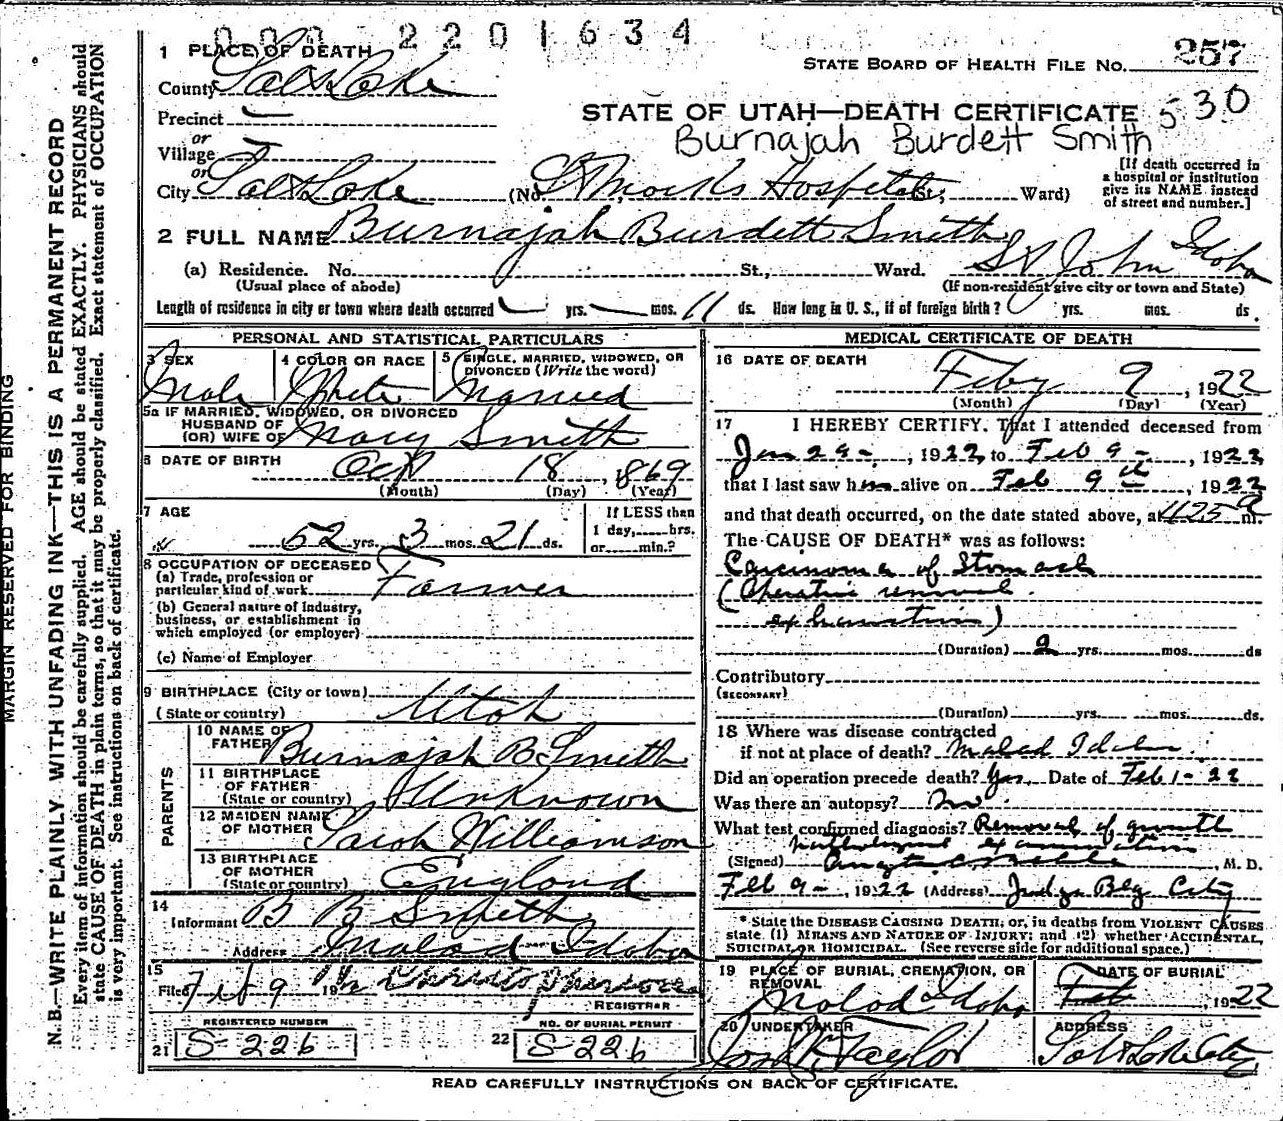 000 2201634
1 PLACE OF DEATH
STATE BOARD OF HEALTH FILE NO. 257
County Salt Lake
STATE OF UTAH—DEATH CERTIFICATE 530
Precinct
Burnajah Burdett Smith
or
Village
or
City Salt Lake (No. St Marks Hospital St., Ward)
[If death occurred in
a hospital or institution
give its NAME instead
of street and number.]
2 FULL NAME Burnajah Burdett Smith
(a) Residence. No. St., Ward. St John Idaho
(Usual place of abode) (If non-resident give city or town and State)
Length of residence in city or town where death occurred — yrs. — mos. 11 ds. How long in U. S., if of foreign birth? yrs. mos. ds.
PERSONAL AND STATISTICAL PARTICULARS
3 SEX Male
4 COLOR OR RACE White
5 SINGLE, MARRIED, WIDOWED, OR
DIVORCED (Write the word)
Married
5a IF MARRIED, WIDOWED, OR DIVORCED
HUSBAND OF
(OR) WIFE OF Mary Smith
6 DATE OF BIRTH Oct 18, 1869
(Month) (Day) (Year)
7 AGE 52 yrs. 3 mos. 21 ds.
If LESS than
1 day, hrs.
or min.?
8 OCCUPATION OF DECEASED
(a) Trade, profession or
particular kind of work Farmer
(b) General nature of Industry,
business, or establishment in
which employed (or employer)
(c) Name of Employer
9 BIRTHPLACE (City or town)
(State or country) Utah
PARENTS
10 NAME OF
FATHER Burnajah B Smith
11 BIRTHPLACE
OF FATHER
(State or country) Unknown
12 MAIDEN NAME
OF MOTHER Sarah Williamson
13 BIRTHPLACE
OF MOTHER
(State or country) England
14
Informant B B Smith
Address Malad Idaho
15
Filed Feb 9 19
REGISTRAR
REGISTERED NUMBER
21 S-226
NO. OF BURIAL PERMIT
22 S-226
MEDICAL CERTIFICATE OF DEATH
16 DATE OF DEATH
Feby 9, 1922
(Month) (Day) (Year)
17 I HEREBY CERTIFY, That I attended deceased from
Jan 29-, 1922, to Feb 9-, 1922
that I last saw him alive on Feb 9th, 1922
and that death occurred, on the date stated above, at 425 a m.
The CAUSE OF DEATH* was as follows:
Carcinoma of Stomach
(Operative removal
exhaustion)
(Duration) 2 yrs. mos. ds
Contributory
(SECONDARY)
(Duration) yrs. mos. ds.
18 Where was disease contracted
if not at place of death? Malad Idaho
Did an operation precede death? Yes. Date of Feb 1-22
Was there an autopsy? No
What test confirmed diagnosis? Removal of growth
pathological examination
(Signed) , M. D.
Feb 9-, 1922 (Address) Judge Blg City
*State the DISEASE CAUSING DEATH, or, in deaths from VIOLENT CAUSES
state (1) MEANS AND NATURE OF INJURY; and (2) whether ACCIDENTAL,
SUICIDAL or HOMICIDAL. (See reverse side for additional space.)
19 PLACE OF BURIAL, CREMATION, OR
REMOVAL
Malad Idaho
DATE OF BURIAL
Feb , 1922
20 UNDERTAKER
Jos. Taylor
ADDRESS
Salt Lake City
READ CAREFULLY INSTRUCTIONS ON BACK OF CERTIFICATE.
MARGIN RESERVED FOR BINDING
N. B.—WRITE PLAINLY WITH UNFADING INK—THIS IS A PERMANENT RECORD
Every item of information should be carefully supplied. AGE should be stated EXACTLY. PHYSICIANS should
state CAUSE OF DEATH in plain terms, so that it may be properly classified. Exact statement of OCCUPATION
is very important. See instructions on back of certificate.